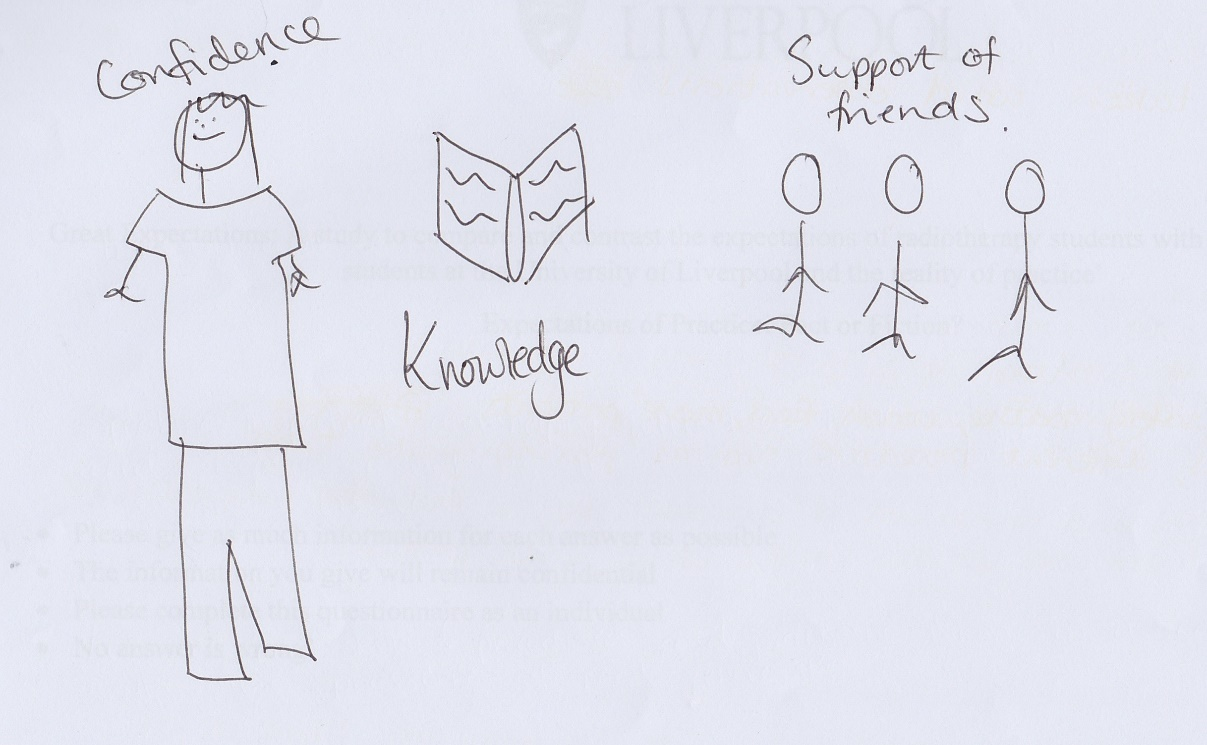 Confidence
Support of
friends.
Knowledge
LIVERPOOL
Great Expectations: A study to compare and contrast the expectations of radiotherapy students with
students at the University of Liverpool and the reality of practice'
Expectations of Practice: Fact or Fiction?
Please give as much information for each answer as possible
The information you give will remain confidential
Please complete this questionnaire as an individual
No answer is wrong